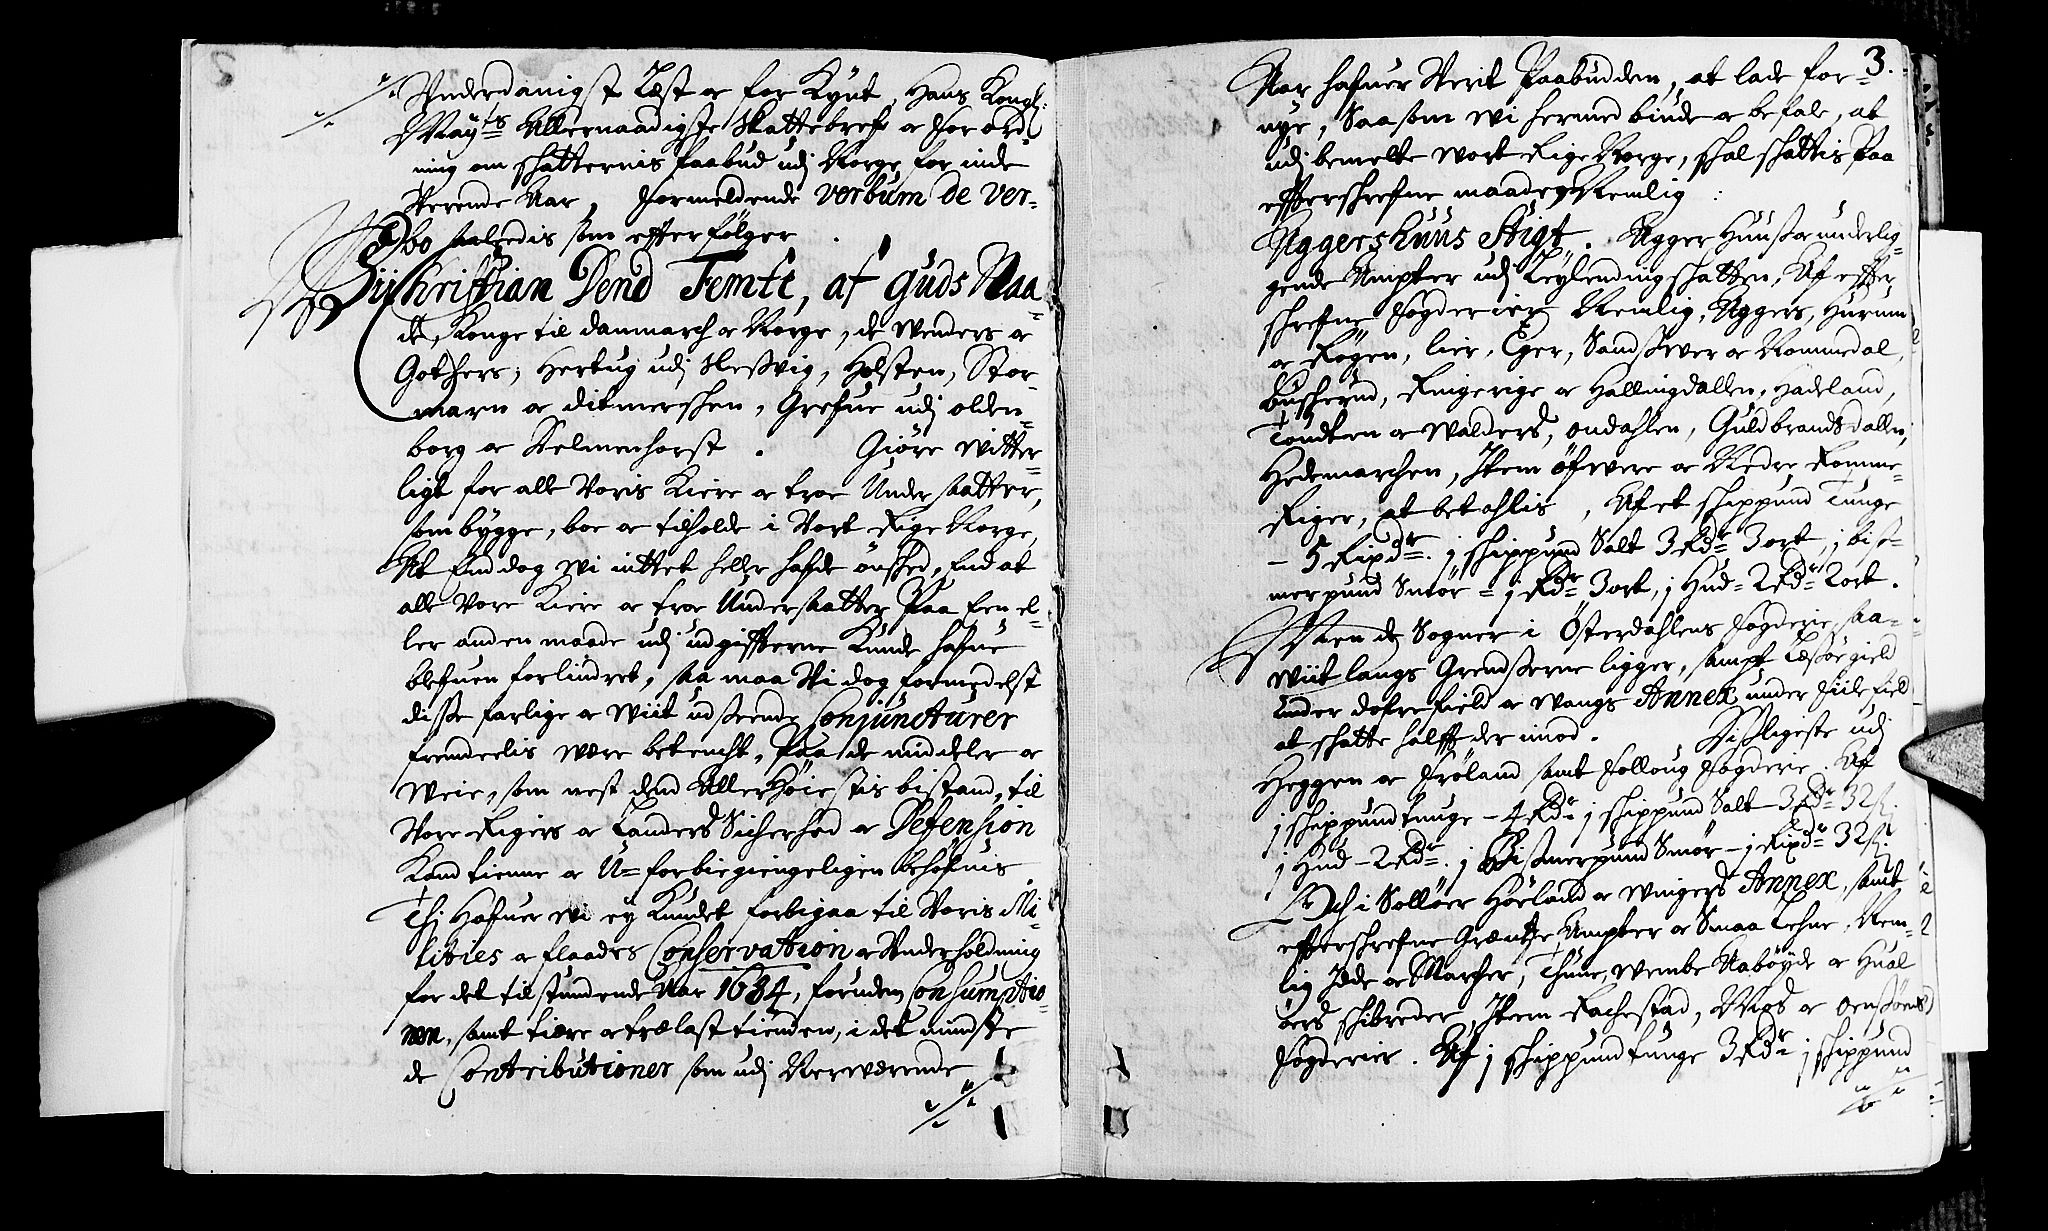 Underdanigst Læst og for Kynt, Hans Kongl:
Mayts Allernaadigste Skattebref og Forord
ning om skatternis paabud udj Norge for inde
Verende Aar, Formeldende verbum de ver-
bo saaledis som efterfølger
Wii Christian Dend Femte, af Guds Naa-
de, Konge til danmarch og Norge, de Wenders og
Gothers, Hertug udj Sleßvig, Holsten, Stor-
marn og ditmerschen, Grefue udj olden-
borg og Delmenhorst. Giøre witter-
ligt for alle Voris Kiere og troe Undersaatter,
som bygge, boe og tilholde i Vort Rige Norge,
At End dog wi inttet heller hafde ønsched, End at
alle Vore Kiere og troe Undersaatter Paa Een el-
ler anden maade udj udgifterne Kunde hafue
blefuen forlindret, saa maa Vi dog formedelst
disse farlige og wiit udseende Conjuncturer
fremdeelis være betencht, Paa de middeler og
Weie, som nest dend Allerhøiestis bistand, til
Vore Rigers og Landers Sicherhed og Defension
Kand tienne og U-forbigiengeligen behøfuis.
Thj Hafuer wi ey Kundet forbigaa til Voris Mi-
lities og flaades Conservation og Underholdning
for det tilstundende Aar 1684, foruden Consumptio-
nen, samt tiære og trælast tienden, i det mindste
de Contributioner som udj Nerwærende
3.
Aar hafuer Verit Paabudden, at lade for-
nye, Saasom wi hermed biude og befale, at
udj bemelte Vort Rige Norge, schal schattis Paa
efterschrefne maader Nemlig:
Aggershuus Stigt. Aggerhuuß og underlig-
gende Ampter udj Leylendingschatten, Af efter
schrefne Fogderier Nemlig, Aggers, Hurum
og Røgen, lier, Eger, Sandsver og Nommedal,
buscherud, Ringerige og Hallingdallen, Hadeland,
Toudten og Walders, Oudahlen, Guldbrandsdallen,
Hedemarchen, Item øfwere og Nedre Romme-
Riger, at betahlis, Af et schippund Tunge
- 5 Rixdr. j schippund Salt 3 Rdr 3 ort, j bis-
merpund Smør - j Rdr 3 ort, j Hud - 2 Rdr 2 ort.
Men de Sogner i Østerdahlens Fogderie, saa-
wiit langs Grendserne ligger, sampt Leßøe gield
under dofrefield og Wangs Annex under Fiilefield
at schatte halfft der imod. Disligeste udj
Heggen og Frøland samt Folloug Fogderie. Af
j schippund tunge - 4 Rdr j schippund Salt 3 Rdr 32 ß.
j Hud - 2 Rdr. j Bismerpund Smør - j Rixdr 32 ß.
Och i Soløer Hoelands og Wingers Annex, samt
efterschrefne Grændse Ampter og Smaa Lehne, Nem-
lig Idde og Marcher, Thune, Wembe Aabøyde og Hual
øers schibreder, Item Rachestad, Mos og Onsøens
Fogderier. Af j schippund tunge 3 Rdr j schippund